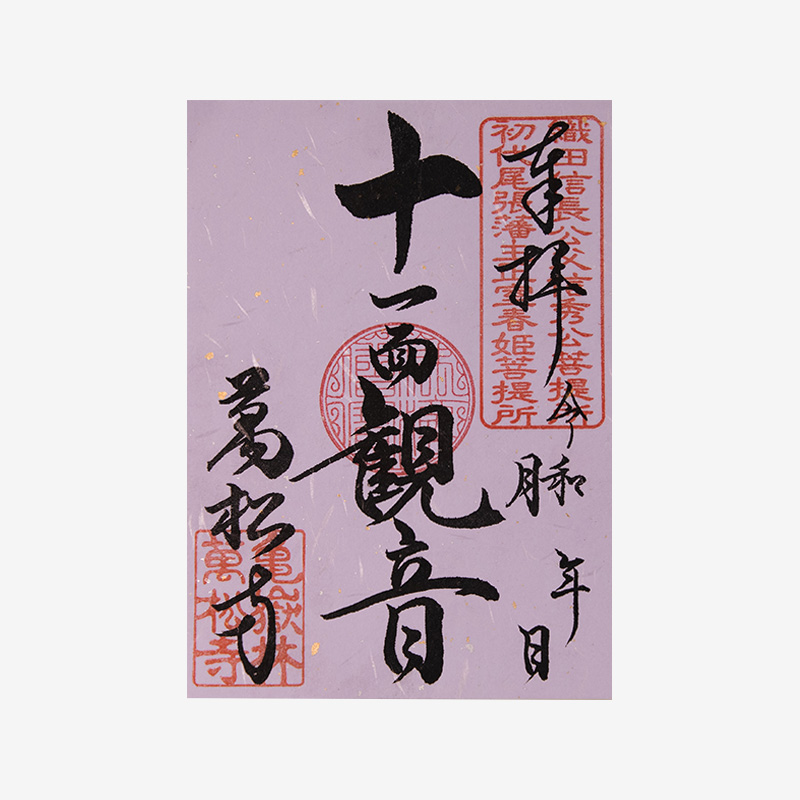 奉拝
令和　年
月　日
織田信長公父信秀公菩提所
初代尾張藩主正室春姫菩提所
十一面観音
萬松寺
亀嶽林
萬松寺